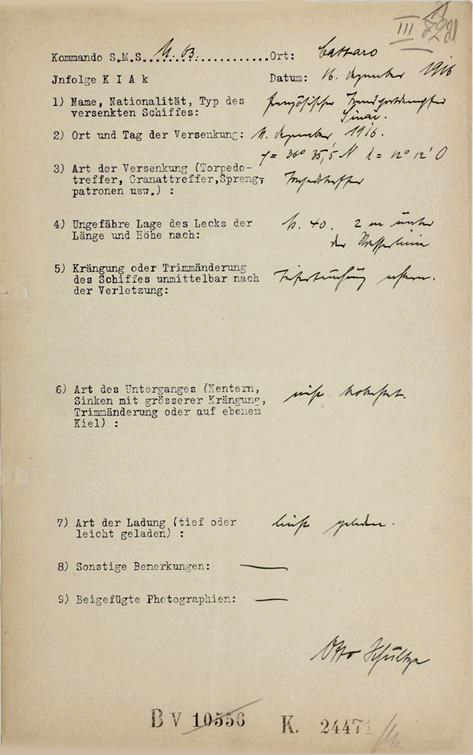 III
Kommando S.M.S. U. 63. Ort: Cattaro
Jnfolge K I A k Datum: 16. Dezember 1916
1) Name, Nationalität, Typ des französischer Transportdampfer
versenkten Schiffes: Sinai.
2) Ort und Tag der Versenkung: 11. Dezember 1916.
φ = 36° 35,5 N λ = 12° 12' O
3) Art der Versenkung (Torpedo-
treffer, Granattreffer, Spreng- Torpedotreffer
patronen usw.) :
4) Ungefähre Lage des Lecks der 2 m unter
Länge und Höhe nach: der Wasserlinie
5) Krängung oder Trimmänderung
des Schiffes unmittelbar nach
der Verletzung:
6) Art des Unterganges (Kentern, nicht beobachtet.
Sinken mit grösserer Krängung,
Trimmänderung oder auf ebenem
Kiel) :
7) Art der Ladung (tief oder leicht geladen.
leicht geladen) :
8) Sonstige Bemerkungen: —
9) Beigefügte Photographien: —
Otto Schultze
B V 10556 K. 2447